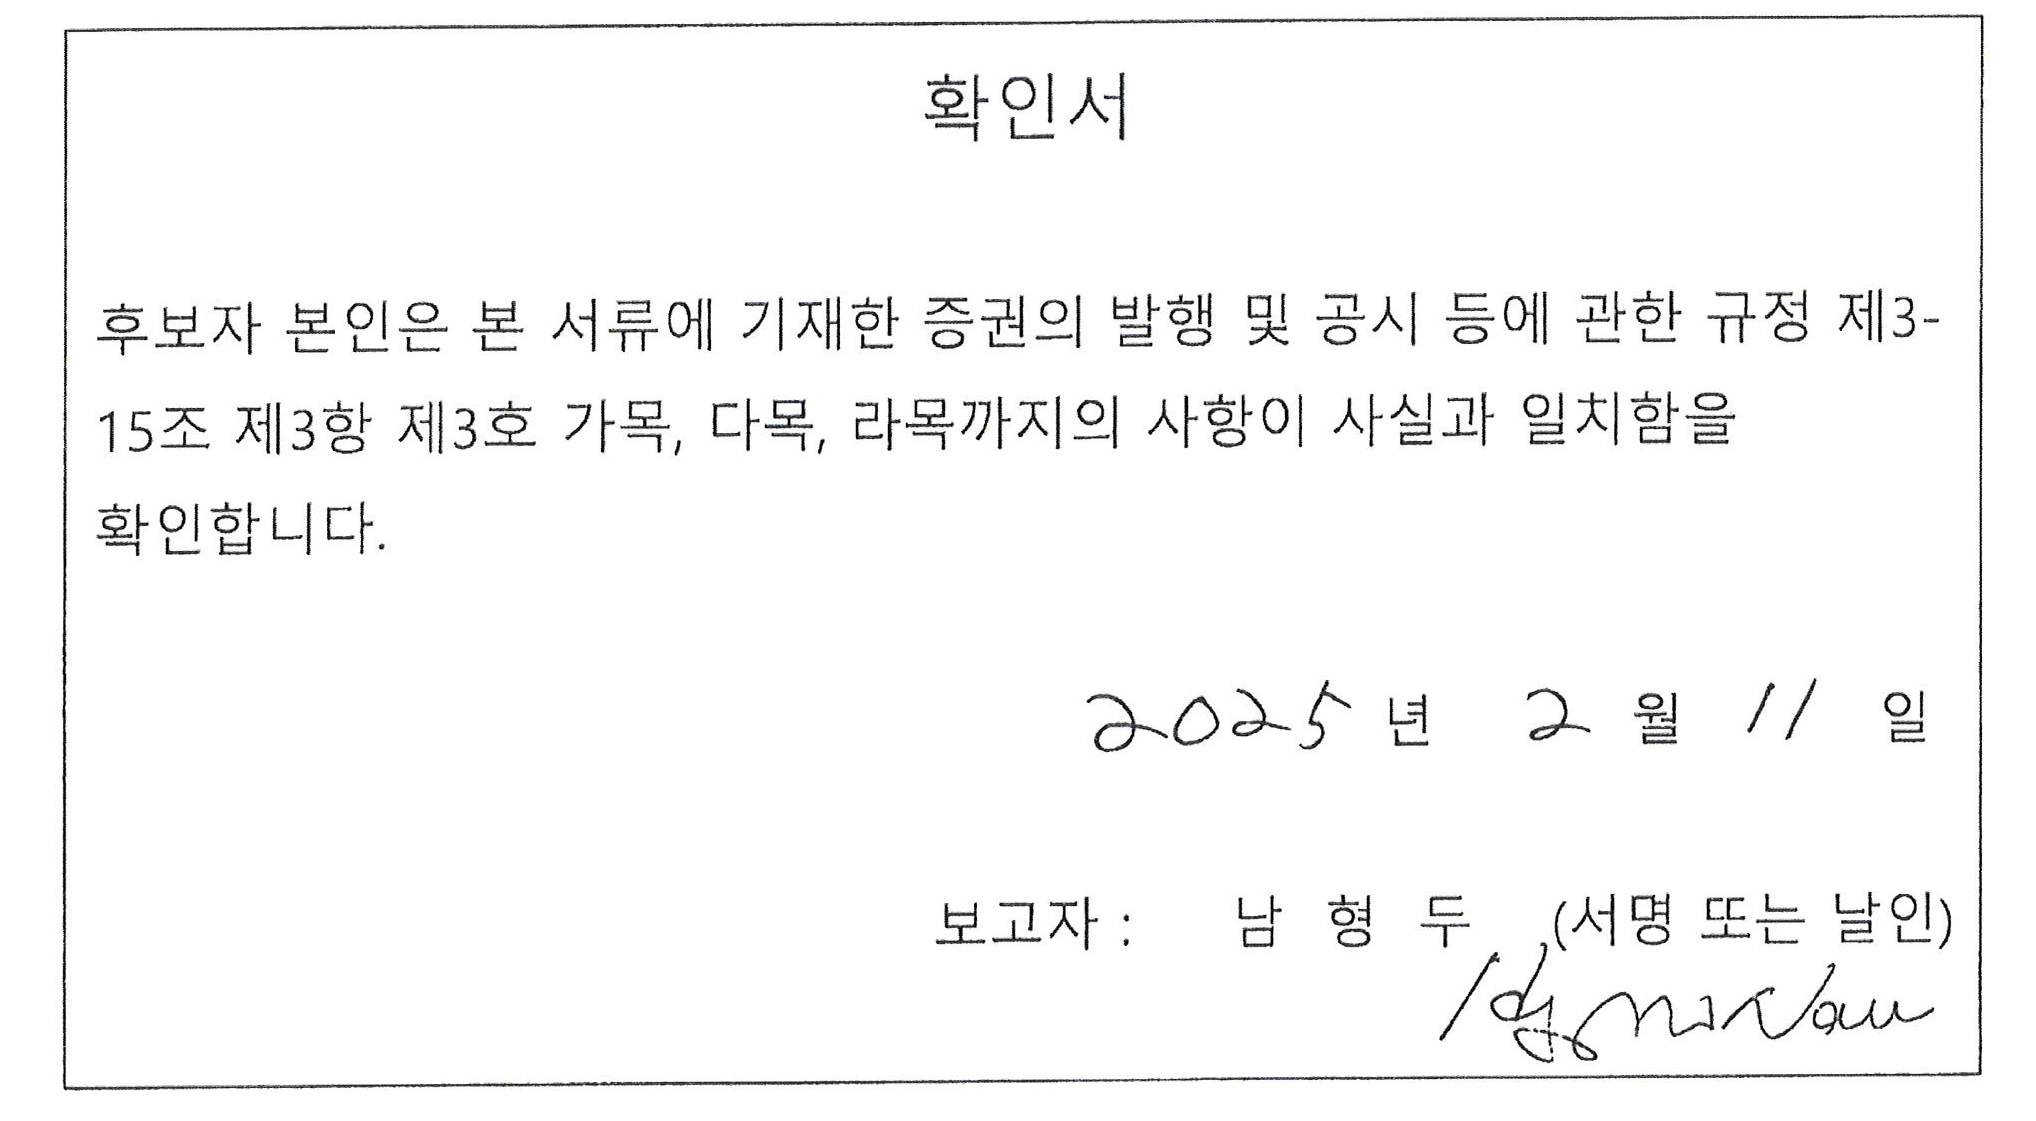 확인서
후보자 본인은 본 서류에 기재한 증권의 발행 및 공시 등에 관한 규정 제3-
15조 제3항 제3호 가목, 다목, 라목까지의 사항이 사실과 일치함을
확인합니다.
2025 년 2 월 11 일
보고자 : 남 형 두 (서명 또는 날인)